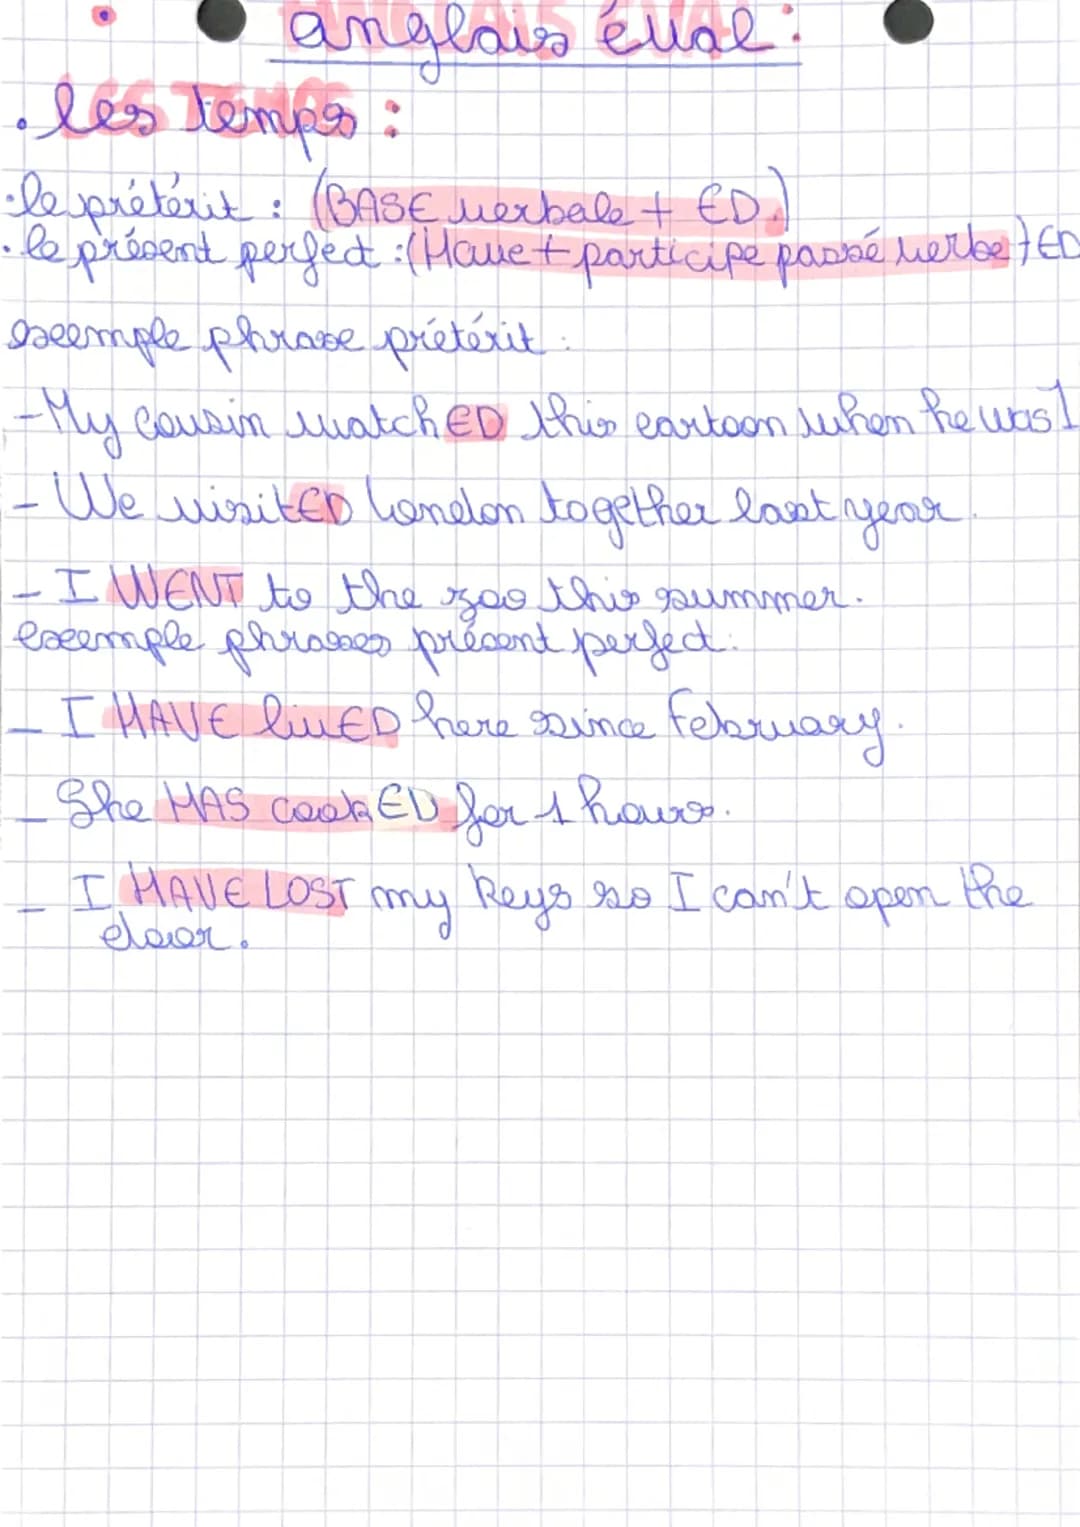 anglais éval :
. les temps :
. le prétérit : (BASE verbale + ED.)
. le présent perfect : (Have + participe passé verbe) + ED
exemple phrase prétérit :
- My cousin watchED this cartoon when he was 1
- We visitED London together last year.
- I WENT to the zoo this summer.
exemple phrases présent perfect :
- I HAVE livED here since February.
- She HAS cookED for 1 hours.
- I HAVE LOST my keys so I can't open the
door.